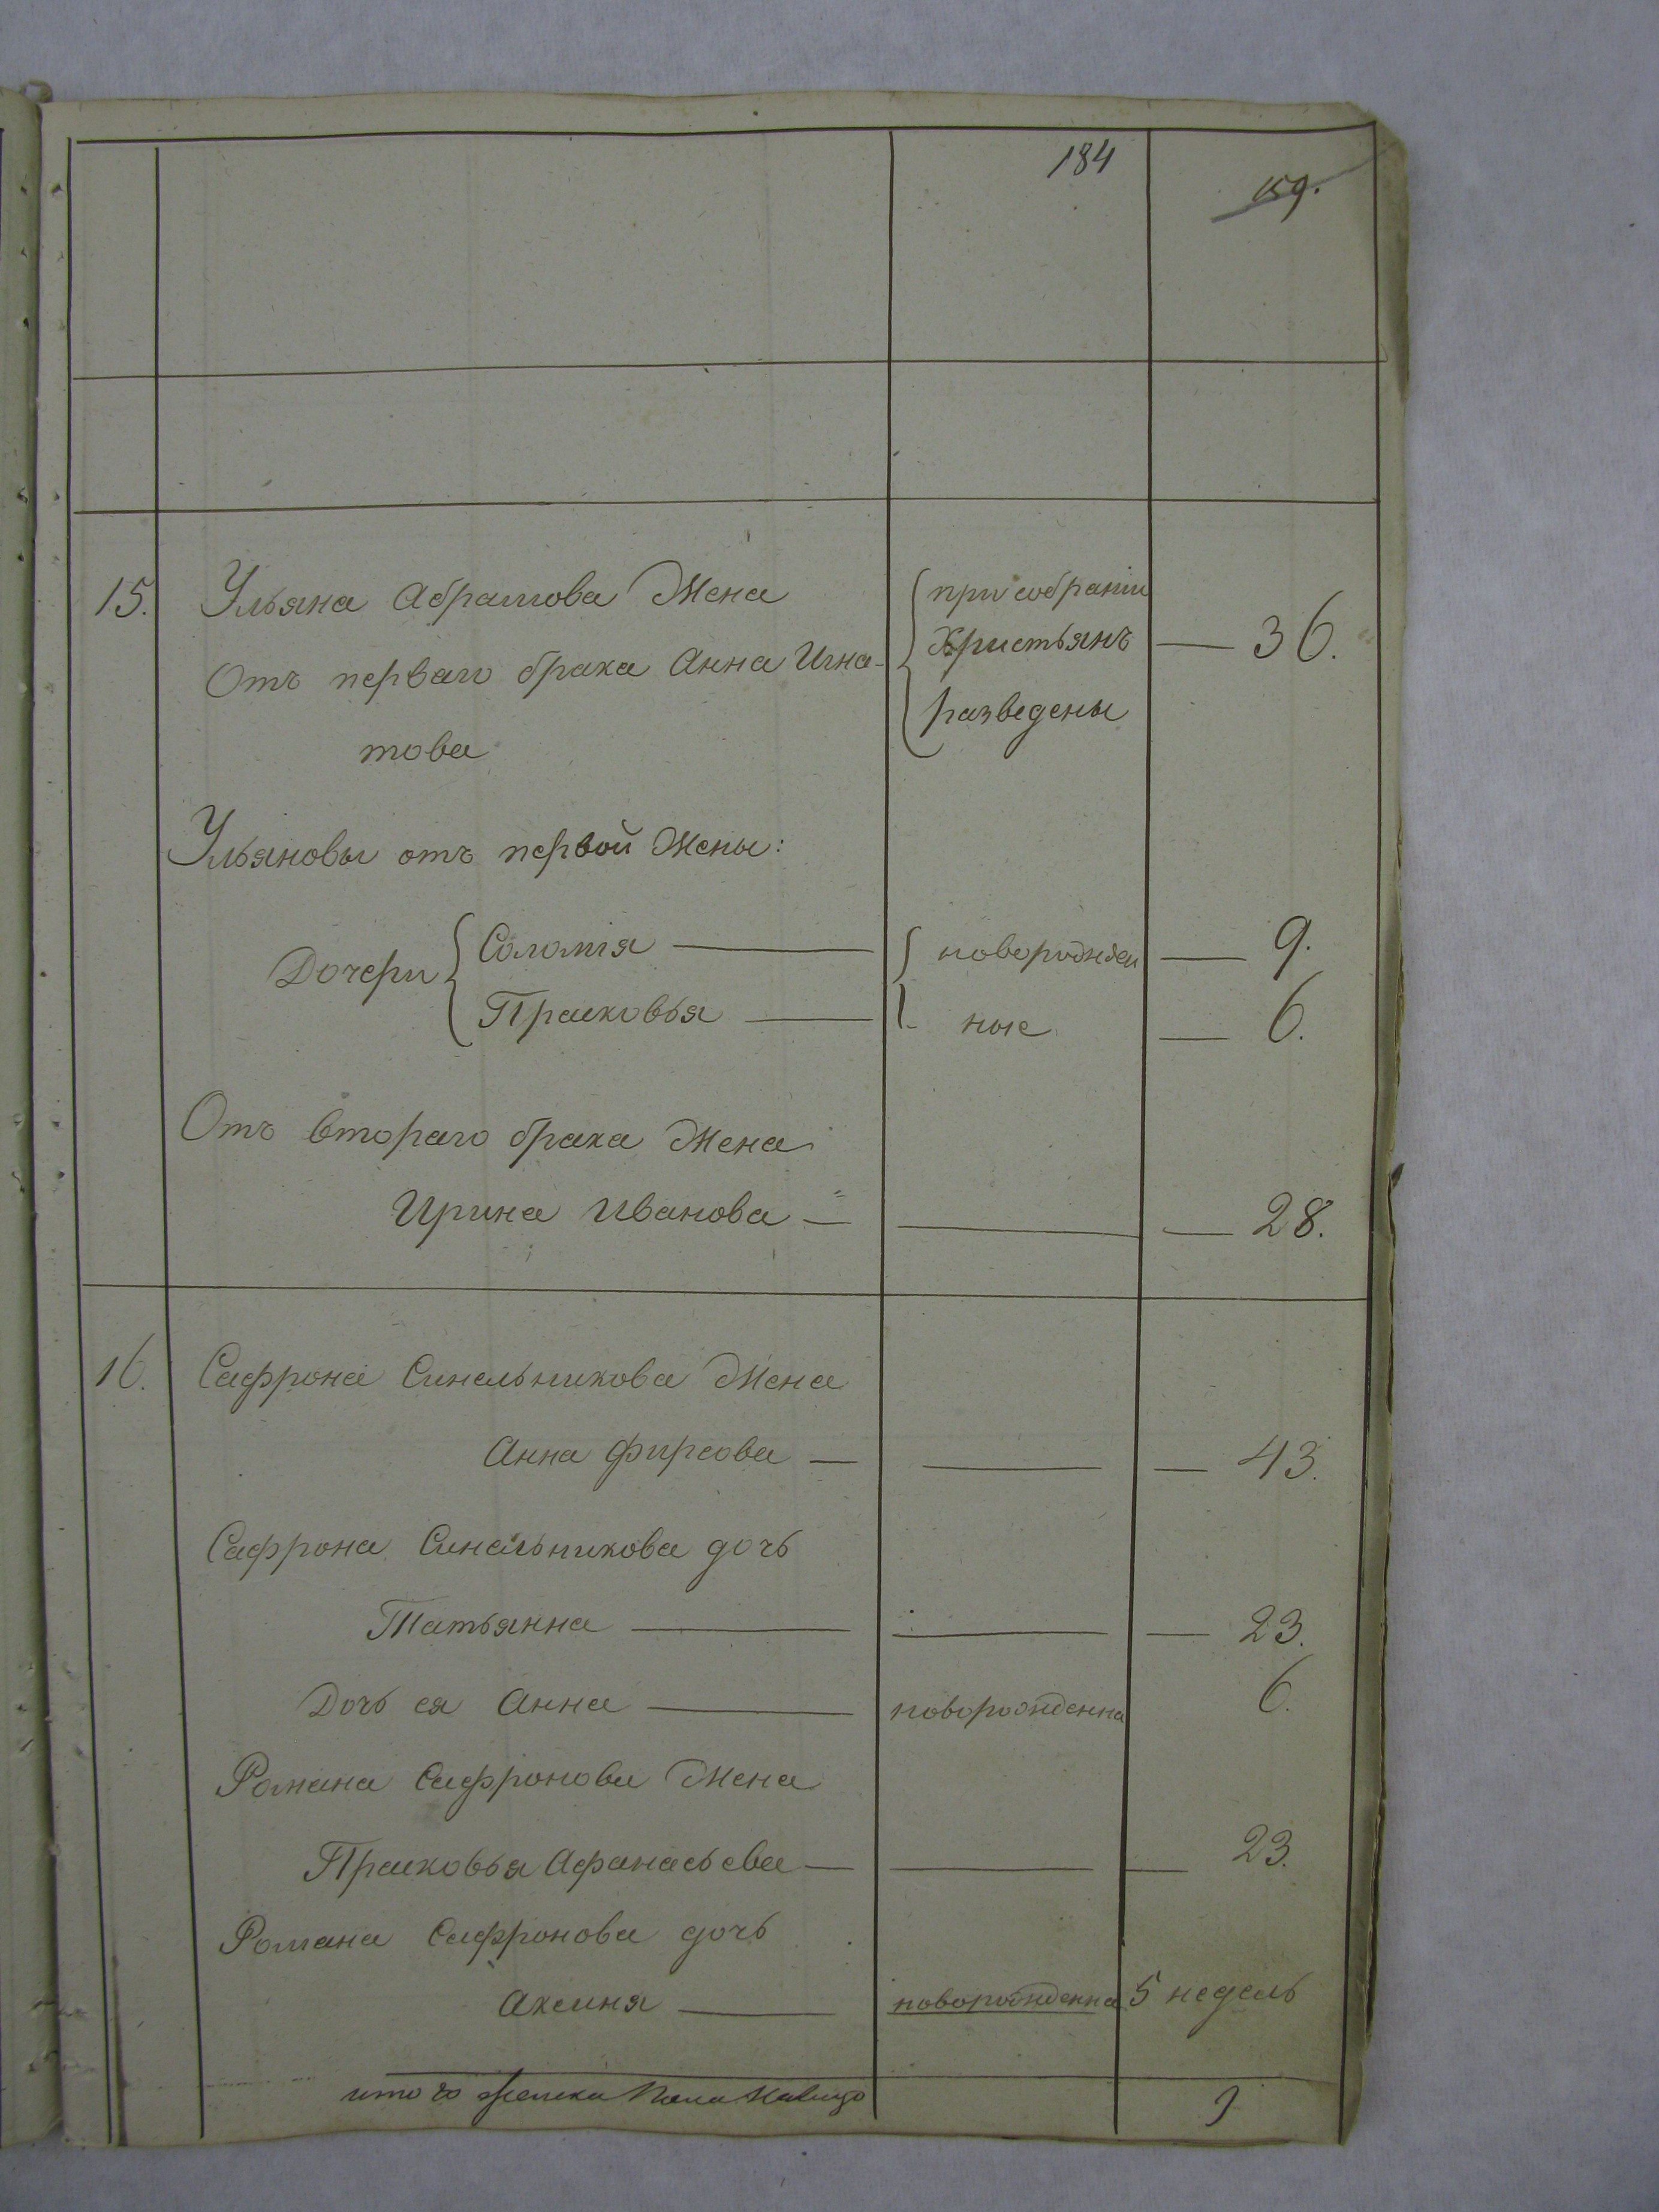 184
159.
15. Ульяна Абрамова Жена
Отъ перваго брака Анна Игна-
това
при собраніи
Христьянъ — 36.
разведены
Ульяновы отъ первой Жены:
Дочери Соломія — новорожден — 9.
Прасковья — ные — 6.
Отъ втораго брака Жена
Ирина Иванова — — 28.
16. Сафрона Синельникова Жена
Анна Фирсова — — 43.
Сафрона Синельникова дочь
Татьянна — — 23.
Дочь ея Анна — новорожденна 6.
Романа Сафронова Жена
Прасковья Афанасьева — — 23.
Романа Сафронова дочь
Аксиня — новорожденна 5 недель
итого женска пола на лицо 9